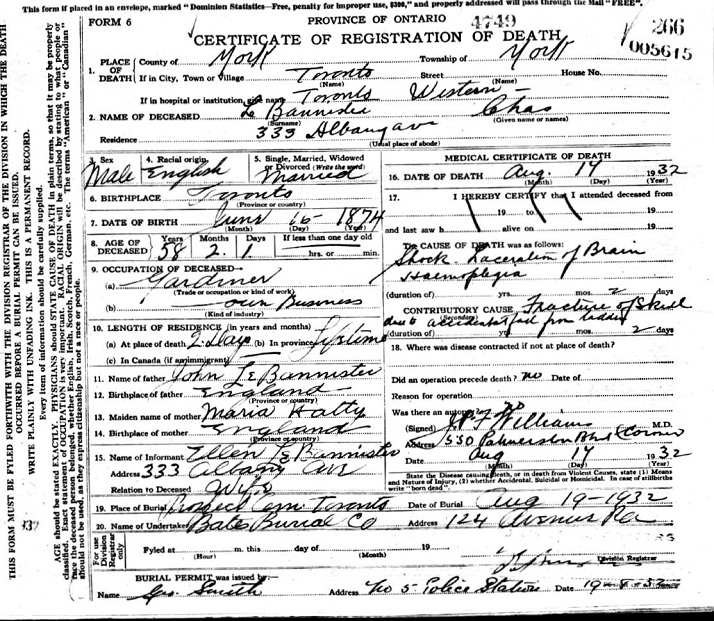 This form if placed in an envelope, marked "Dominion Statistics—Free, penalty for improper use, $300," and property addressed will pass through the Mail "FREE".
FORM 6
PROVINCE OF ONTARIO
4749
266
005615
CERTIFICATE OF REGISTRATION OF DEATH
1. PLACE OF DEATH County of York Township of York
If in City, Town or Village Toronto Street House No.
(Name) (Name)
If in hospital or institution, give name Toronto Western
2. NAME OF DECEASED Le Bannister Chas
(Surname) (Given name or names)
Residence 333 Albany ave
(Usual place of abode)
3. Sex Male
4. Racial origin English
5. Single, Married, Widowed or Divorced (Write the word) Married
6. BIRTHPLACE Toronto
(Province or country)
7. DATE OF BIRTH June 16 - 1874
(Month) (Day) (Year)
8. AGE OF DECEASED Years 58 Months 2 Days 1 If less than one day old hrs. or min.
9. OCCUPATION OF DECEASED—
(a) Gardiner
(Trade or occupation or kind of work)
(b) own Business
(Kind of industry)
10. LENGTH OF RESIDENCE (in years and months)
(a) At place of death 2 Days (b) In province Lifetime
(c) In Canada (if an immigrant)
11. Name of father John Le Bannister
12. Birthplace of father England
(Province or country)
13. Maiden name of mother Maria Hatty
14. Birthplace of mother England
(Province or country)
15. Name of Informant Ellen Le Bannister
Address 333 Albany Ave
Relation to Deceased Wife
MEDICAL CERTIFICATE OF DEATH
16. DATE OF DEATH Aug. 17 1932
(Month) (Day) (Year)
17. I HEREBY CERTIFY that I attended deceased from
19 to 19
and last saw h alive on 19
The CAUSE OF DEATH was as follows:
Shock Laceration of Brain
Haemoplegia
(duration of) yrs. mos. 2 days
CONTRIBUTORY CAUSE Fracture of Skull
(Secondary)
due to accidental fall from ladder
(duration of) mos. 2 days
18. Where was disease contracted if not at place of death?
Did an operation precede death? no Date of
Reason for operation
Was there an autopsy? no
(Signed) Williams M.D.
Address 550 Palmerston Blvd (Coroner
Date Aug 17 1932
(Month) (Day) (Year)
State the Disease causing death, or in death from Violent Causes, state (1) Means and Nature of Injury, (2) whether Accidental, Suicidal or Homicidal. In case of stillbirths write "born dead".
19. Place of Burial Prospect Cem Toronto Date of Burial Aug 19-1932
20. Name of Undertaker Bates Burial Co Address 124 Avenue Rd
For use Division Registrar only
Fyled at m. this day of 19
(Hour) (Month)
Division Registrar
BURIAL PERMIT was issued by:—
Name Geo. Smith Address No 5 Police Station Date
THIS FORM MUST BE FYLED FORTHWITH WITH THE DIVISION REGISTRAR OF THE DIVISION IN WHICH THE DEATH OCCURRED BEFORE A BURIAL PERMIT CAN BE ISSUED.
WRITE PLAINLY WITH UNFADING INK. THIS IS A PERMANENT RECORD.
Every item of information should be carefully supplied.
AGE should be stated EXACTLY. PHYSICIANS should STATE CAUSE OF DEATH in plain terms, so that it may be properly classified. Exact statement of OCCUPATION is very important. RACIAL ORIGIN will be described by stating to what people or race the deceased person belonged, whether English, Irish, Scotch, French, German, etc. The terms "American" or "Canadian" should not be used, as they express citizenship but not a race or people.